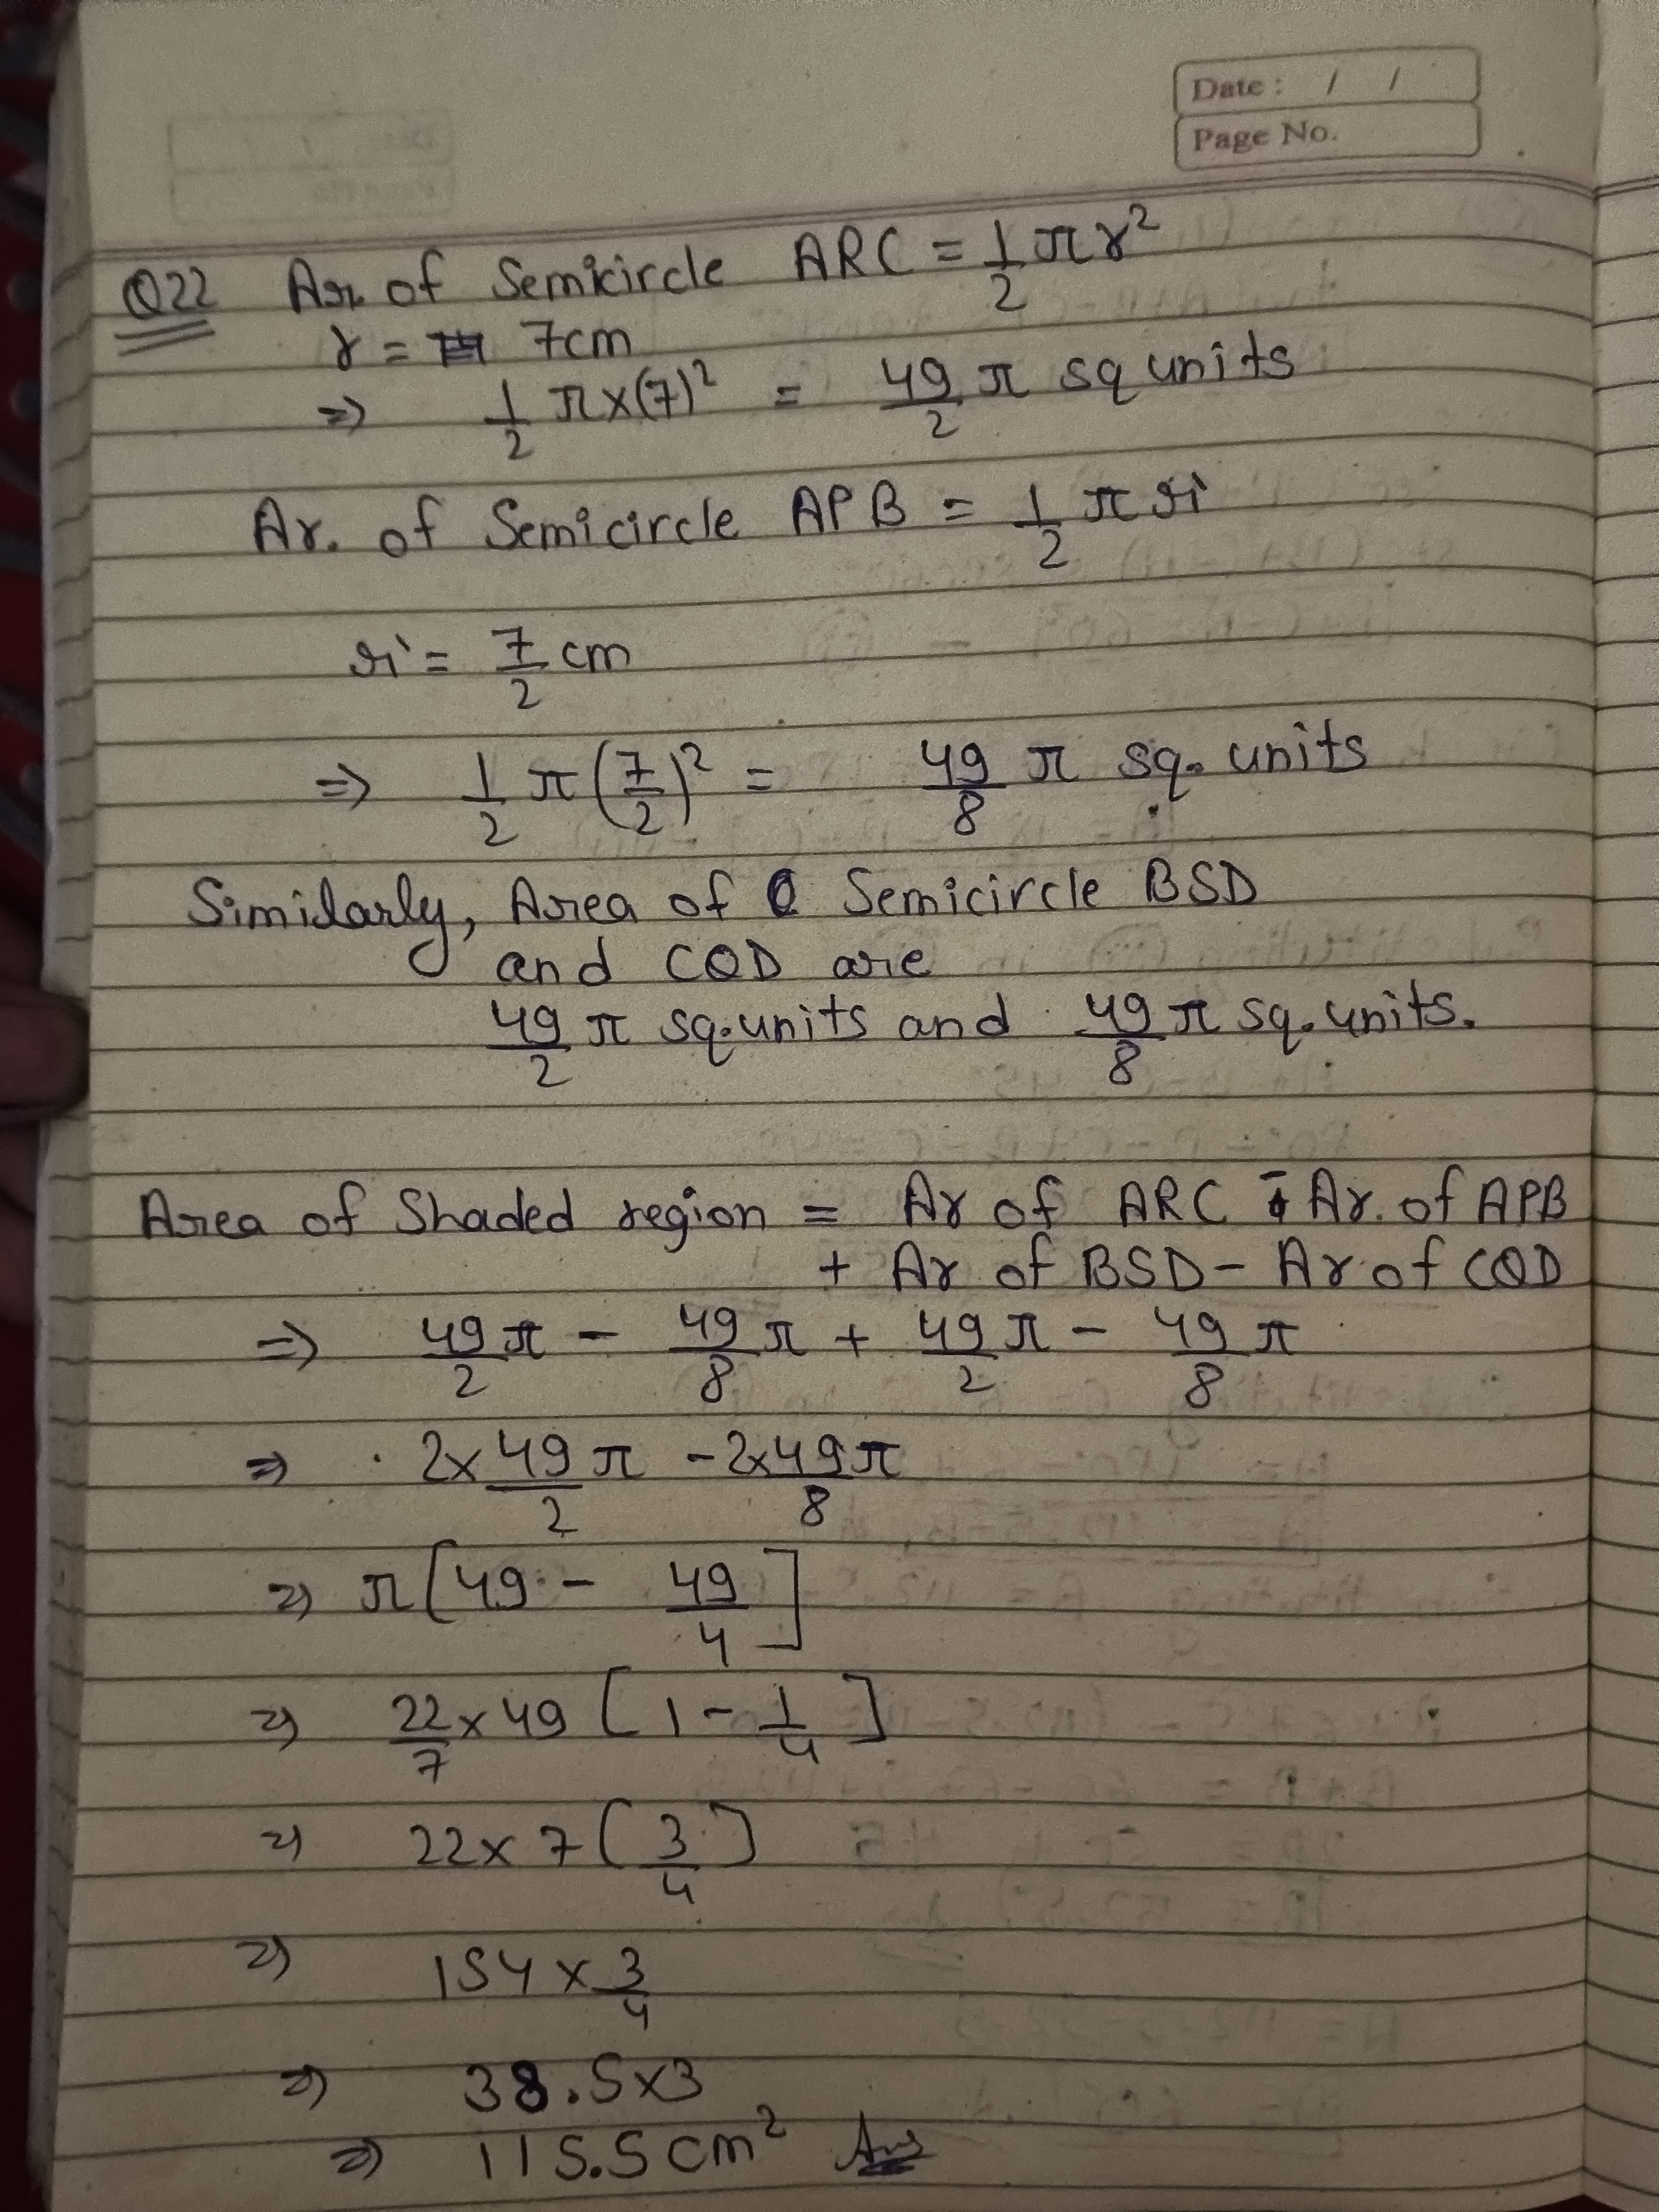 Date : / /
Page No.
Q22 Ar. of Semicircle ARC = 1/2 πr²
r = 7cm
⇒ 1/2 π×(7)² = 49/2 π sq units
Ar. of Semicircle APB = 1/2 π r'
r' = 7/2 cm
⇒ 1/2 π (7/2)² = 49/8 π sq. units
Similarly, Area of Semicircle BSD
and CQD are
49/2 π sq. units and 49/8 π sq. units.
Area of Shaded region = Ar of ARC - Ar. of APB
+ Ar of BSD - Ar of CQD
⇒ 49/2 π - 49/8 π + 49/2 π - 49/8 π
⇒ 2×49/2 π - 2×49/8 π
⇒ π [49 - 49/4]
⇒ 22/7 × 49 [1 - 1/4]
⇒ 22×7 [3/4]
⇒ 154 × 3/4
⇒ 38.5×3
⇒ 115.5 cm² Ans